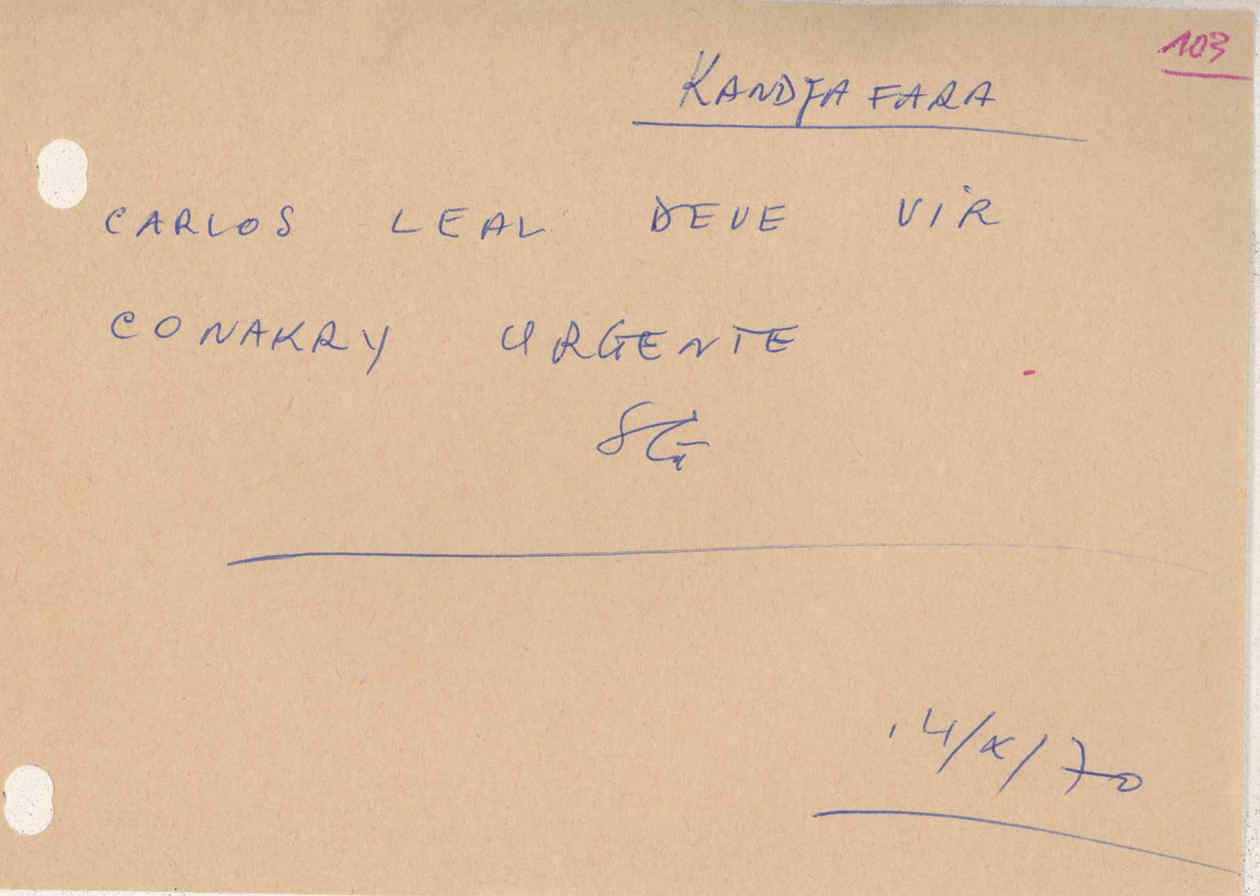 103
KANDJAFARA
CARLOS LEAL DEVE VIR
CONAKRY URGENTE
SG
14/X/70